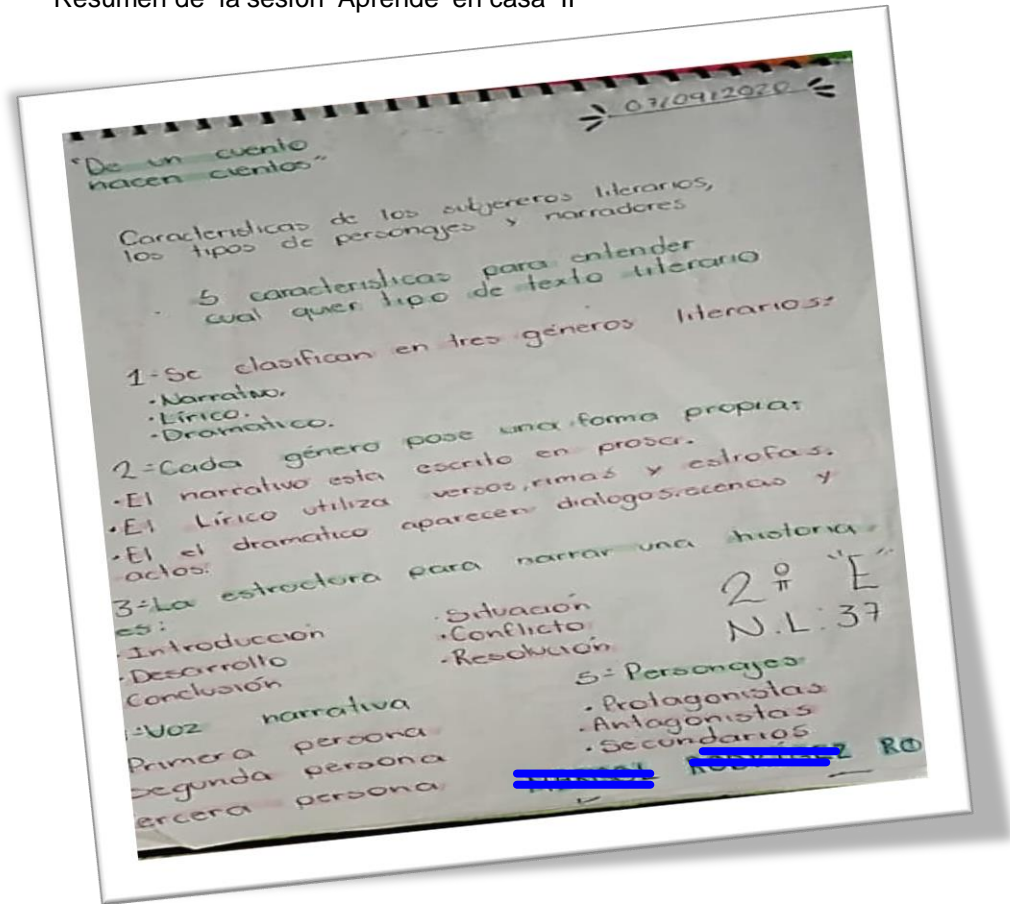 Resumen de la sesión Aprende en casa II
07/09/2020
"De un cuento
hacen cientos"
Caracteristicas de los subjeneros literarios,
los tipos de personajes y narradores
5 caracteristicas para entender
cual quier tipo de texto literario
1-Se clasifican en tres géneros literarios:
·Narrativo.
·Lírico.
·Dramatico.
2=Cada género pose una forma propia:
·El narrativo esta escrito en prosa.
·El Lírico utiliza versos, rimas y estrofas.
·El el dramatico aparecen dialogos, ecencias y
actos.
3=La estroctora para narrar una historia
es:
·Introduccion
·Desarrollo
Conclusión
·Situación
·Conflicto
·Resolución
2º "E"
N.L: 37
=Voz narrativa
Primera persona
Segunda persona
ercera persona
5= Personajes
·Protagonistas
·Antagonistas
·Secundarios